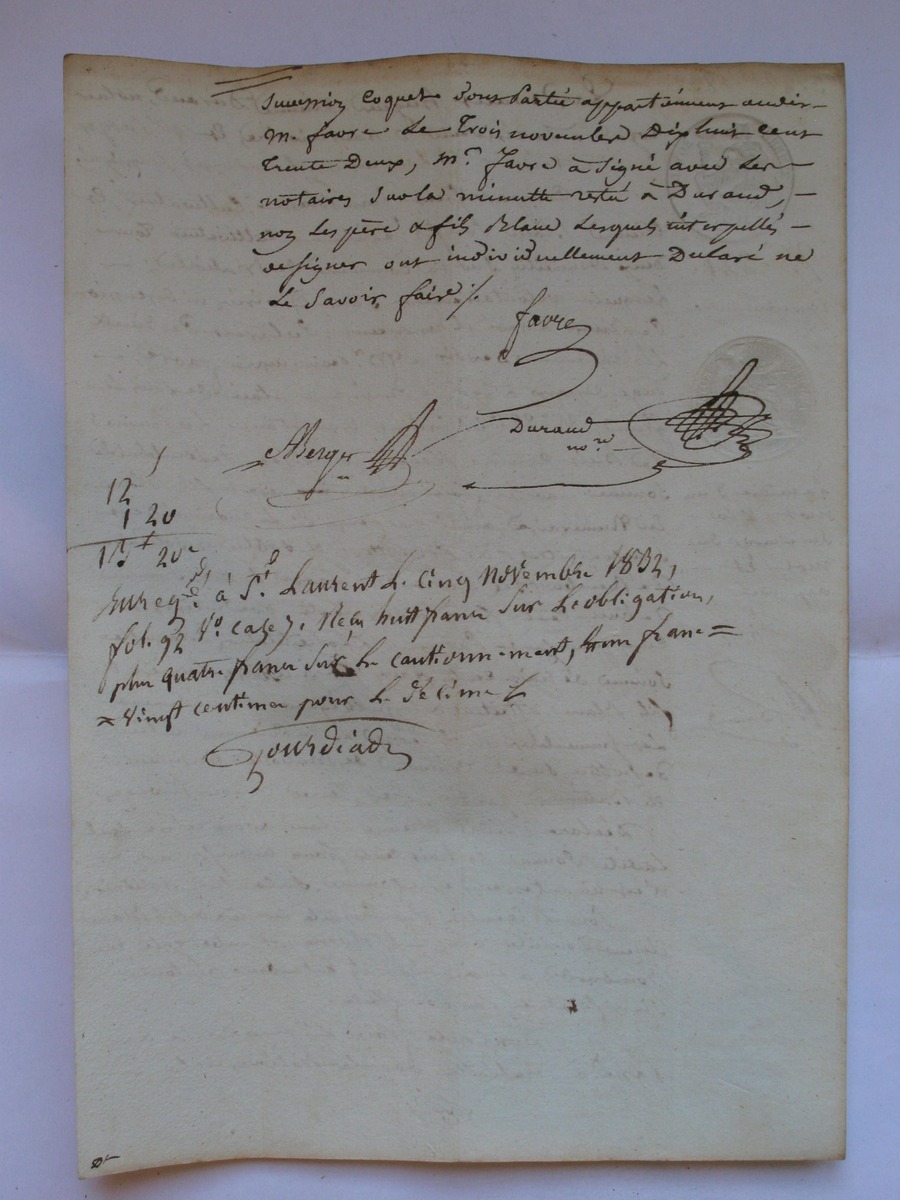 succession Coquet dont partie appartiennent audit
m. favre Le Trois novembre Dixhuit cent
trente Deux, m.r favre à signé avec Les
notaires sur la minutte resté à Durand,
non Les père & fils Blanc Lesquels interpellés
de signer ont individuellement Déclaré ne
Le savoir faire ./.
favre
Durand
no.re
ABerger
12
1 20
13 f 20 c
Enreg.é à S.t Laurent Le cinq Novembre 1832,
fol. 92 V.o case 7. Reçu huit francs sur L'obligation,
plus quatre francs sur Le cautionnement, & un franc
vingt centimes pour Le décime
Gourdiad